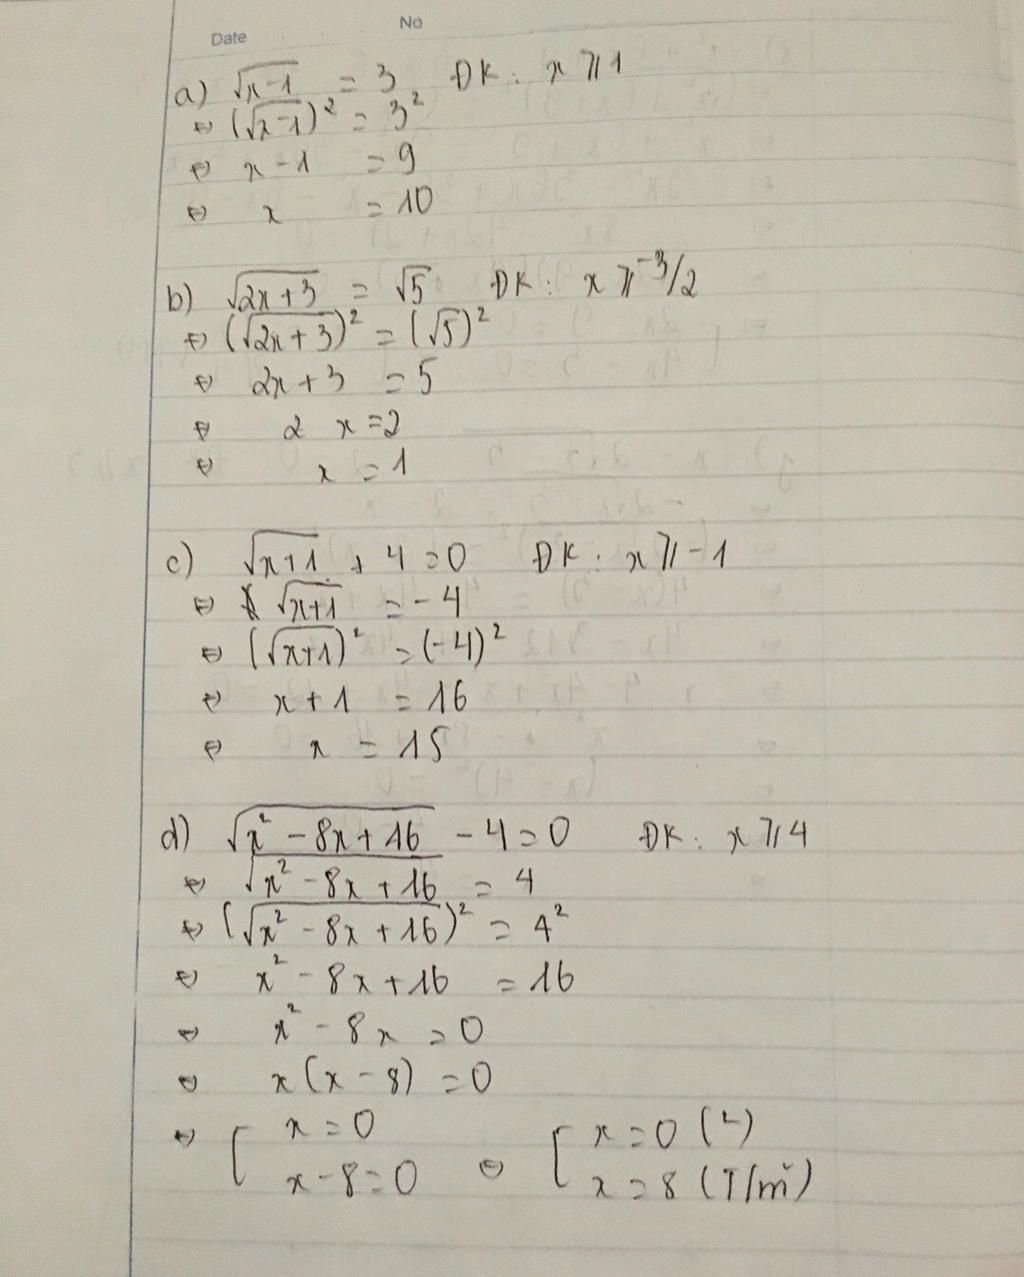 Date No
a) √(x-1) = 3 ĐK: x ⩾ 1
⇔ (√(x-1))² = 3²
⇔ x - 1 = 9
⇔ x = 10
b) √(2x+3) = √5 ĐK: x ⩾ -3/2
⇔ (√(2x+3))² = (√5)²
⇔ 2x + 3 = 5
⇔ 2x = 2
⇔ x = 1
c) √(x+1) + 4 = 0 ĐK: x ⩾ -1
⇔ √(x+1) = -4
⇔ (√(x+1))² = (-4)²
⇔ x + 1 = 16
⇔ x = 15
d) √(x² - 8x + 16) - 4 = 0 ĐK: x ⩾ 4
⇔ √(x² - 8x + 16) = 4
⇔ (√(x² - 8x + 16))² = 4²
⇔ x² - 8x + 16 = 16
⇔ x² - 8x = 0
⇔ x(x - 8) = 0
⇔ [ x = 0 ⇔ [ x = 0 (L)
x - 8 = 0 x = 8 (T/m)